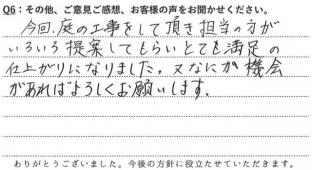 Q6：その他、ご意見ご感想、お客様の声をお聞かせください。
今回、庭の工事をして頂き担当の方が
いろいろ提案してもらいとても満足の
仕上がりになりました。又なにか機会
があればよろしくお願いします。
ありがとうございました。今後の方針に役立たせていただきます。